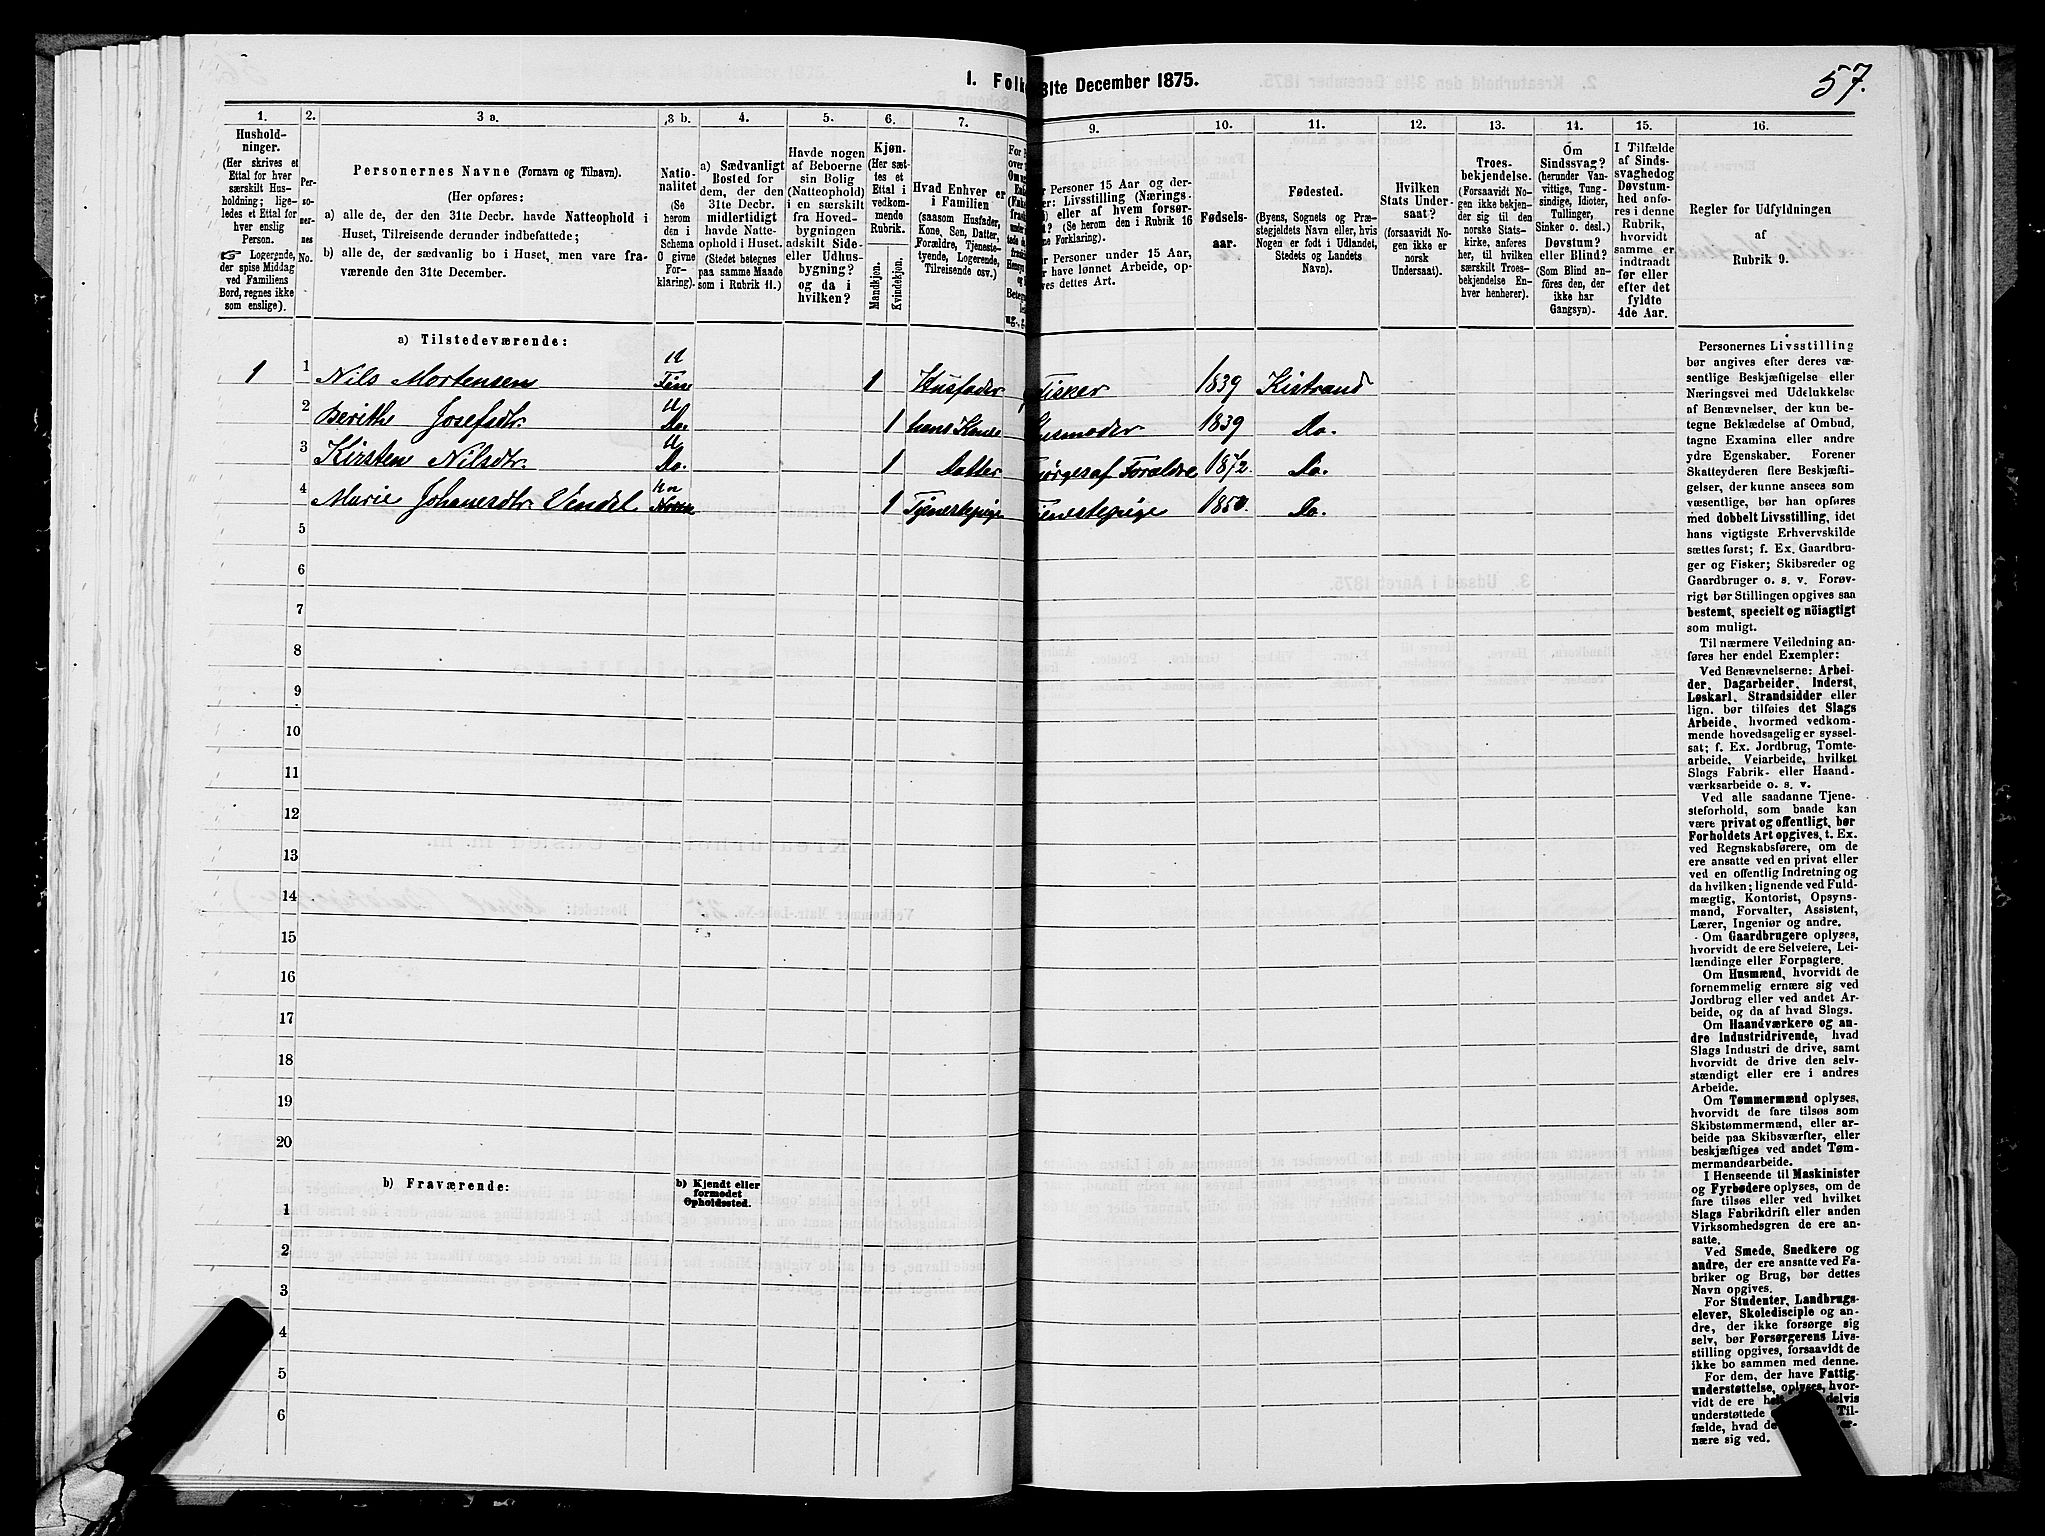 57.
I. Folk 31te December 1875.
1. 2. 3 a. 3 b. 4. 5. 6. 7. 9. 10. 11. 12. 13. 14. 15. 16.
Hushold-
ninger.
(Her skrives et
Ettal for hver
særskilt Hus-
holdning; lige-
ledes et Ettal for
hver enslig
Person.
☞ Logerende,
der spise Middag
ved Familiens
Bord, regnes ikke
som enslige).
Per-
so-
ner-
nes
No.
Personernes Navne (Fornavn og Tilnavn).
(Her opføres:
a) alle de, der den 31te Decbr. havde Natteophold i
Huset, Tilreisende derunder indbefattede;
b) alle de, der sædvanlig bo i Huset, men vare fra-
værende den 31te December.
Natio-
nalitet
(Se
herom
den i
Schema
O givne
For-
klaring).
a) Sædvanligt
Bosted for
dem, der den
31te Decbr.
midlertidigt
havde Natte-
ophold i Huset.
(Stedet betegnes
paa samme Maade
som i Rubrik 11.)
Havde nogen
af Beboerne
sin Bolig
(Natteophold)
i en særskilt
fra Hoved-
bygningen
adskilt Side-
eller Udhus-
bygning?
og da i
hvilken?
Kjøn.
(Her sæt-
tes et
Ettal i
vedkom-
mende
Rubrik.
Mandkjøn.
Kvindekjøn.
Hvad Enhver er
i Familien
(saasom Husfader,
Kone, Søn, Datter,
Forældre, Tjeneste-
tyende, Logerende,
Tilreisende osv.)
r Personer 15 Aar og der-
er: Livsstilling (Nærings-
) eller af hvem forsør-
? (Se herom den i Rubrik 16
ne Forklaring).
r Personer under 15 Aar,
r have lønnet Arbeide, op-
ves dettes Art.
Fødsels-
aar.
Fødested.
(Byens, Sognets og Præ-
stegjeldets Navn eller, hvis
Nogen er født i Udlandet,
Stedets og Landets
Navn).
Hvilken
Stats Under-
saat?
(forsaavidt No-
gen ikke er
norsk
Undersaat).
Troes-
bekjendelse.
(Forsaavidt No-
gen ikke bekjen-
der sig til den
norske Stats-
kirke, anføres
her, til hvilken
særskilt Troes-
bekjendelse En-
hver henhører).
Om
Sindssvag?
(herunder Van-
vittige, Tung-
sindige, Idioter,
Tullinger,
Sinker o. desl.)
Døvstum?
eller Blind?
(Som Blind an-
føres den, der
ikke har
Gangsyn).
I Tilfælde
af Sinds-
svaghed og
Døvstum-
hed anfø-
res i denne
Rubrik,
hvorvidt
samme er
indtraadt
før eller
efter det
fyldte
4de Aar.
Regler for Udfyldningen
af
Rubrik 9.
a) Tilstedeværende:
1 1 Nils Mortensen U Fin 1 Husfader Fisker 1839 Kistrand
2 Berithe Josefsdtr. U Do. 1 hans Kone Husmoder 1839 Do.
3 Kirsten Nilsdtr. U Do. 1 Datter sørges af Forældre 1872. Do.
4 Marie Johanesdtr. Vendel Norsk 1 Tjenestepige Tjenestepige Do.
5
6
7
8
9
10
11
12
13
14
15
16
17
18
19
20
b) Fraværende:
b) Kjendt eller
formodet
Opholdssted.
1
2
3
4
5
6
Personernes Livsstilling
bør angives efter deres væ-
sentlige Beskjæftigelse eller
Næringsvei med Udelukkelse
af Benævnelser, der kun be-
tegne Beklædelse af Ombud,
tagne Examina eller andre
ydre Egenskaber. Forener
Skatteyderen flere Beskjæfti-
gelser, der kunne ansees som
væsentlige, bør han opføres
med dobbelt Livsstilling, idet
hans vigtigste Erhvervskilde
sættes først; f. Ex. Gaardbru-
ger og Fisker; Skibsreder og
Gaardbruger o. s. v. Forøv-
rigt bør Stillingen opgives saa
bestemt, specielt og nöiagtigt
som muligt.
Til nærmere Veiledning an-
føres her endel Exempler:
Ved Benævnelserne: Arbei-
der, Dagarbeider, Inderst,
Løskarl, Strandsidder eller
lign. bør tilføies det Slags
Arbeide, hvormed vedkom-
mende hovedsagelig er syssel-
sat; f. Ex. Jordbrug, Tomte-
arbeide, Veiarbeide, hvilket
Slags Fabrik- eller Haand-
værksarbeide o. s. v.
Ved alle saadanne Tjene-
steforhold, som baade kan
være privat og offentligt, bør
Forholdets Art opgives, t. Ex.
ved Regnskabsførere, om de
ere ansatte ved en privat eller
ved en offentlig Indretning og
da hvilken; lignende ved Fuld-
mægtig, Kontorist, Opsyns-
mand, Forvalter, Assistent,
Lærer, Ingeniør og andre.
Om Gaardbrugere oplyses,
hvorvidt de ere Selveiere, Lei-
lændinge eller Forpagtere.
Om Husmænd, hvorvidt de
fornemmelig ernære sig ved
Jordbrug eller ved andet Ar-
beide, og da af hvad Slags.
Om Haandværkere og an-
dre Industridrivende, hvad
Slags Industri de drive, samt
hvorvidt de drive den selv-
stændigt eller ere i andres
Arbeide.
Om Tømmermænd oplyses,
hvorvidt de fare tilsøs som
Skibstømmermænd, eller ar-
beide paa Skibsværfter, eller
beskjæftiges ved andet Tøm-
mermandsarbeide.
I Henseende til Maskinister
og Fyrbødere oplyses, om de
fare tilsøs eller ved hvilket
Slags Fabrikdrift eller anden
Virksomhedsgren de ere an-
satte.
Ved Smede, Snedkere og
andre, der ere ansatte ved Fa-
briker og Brug, bør dettes
Navn opgives.
For Studenter, Landbrugs-
elever, Skoledisciple og an-
dre, der ikke forsørge sig
selv, bør Forsørgerens Livs-
stilling opgives, forsaavidt de
ikke bo sammen med denne.
For dem, der have Fattig-
understøttelse, oplyses, hvor-
vidt de ere delvis
understøttede Til-
fælde, hvad de er-
nære sig ved.